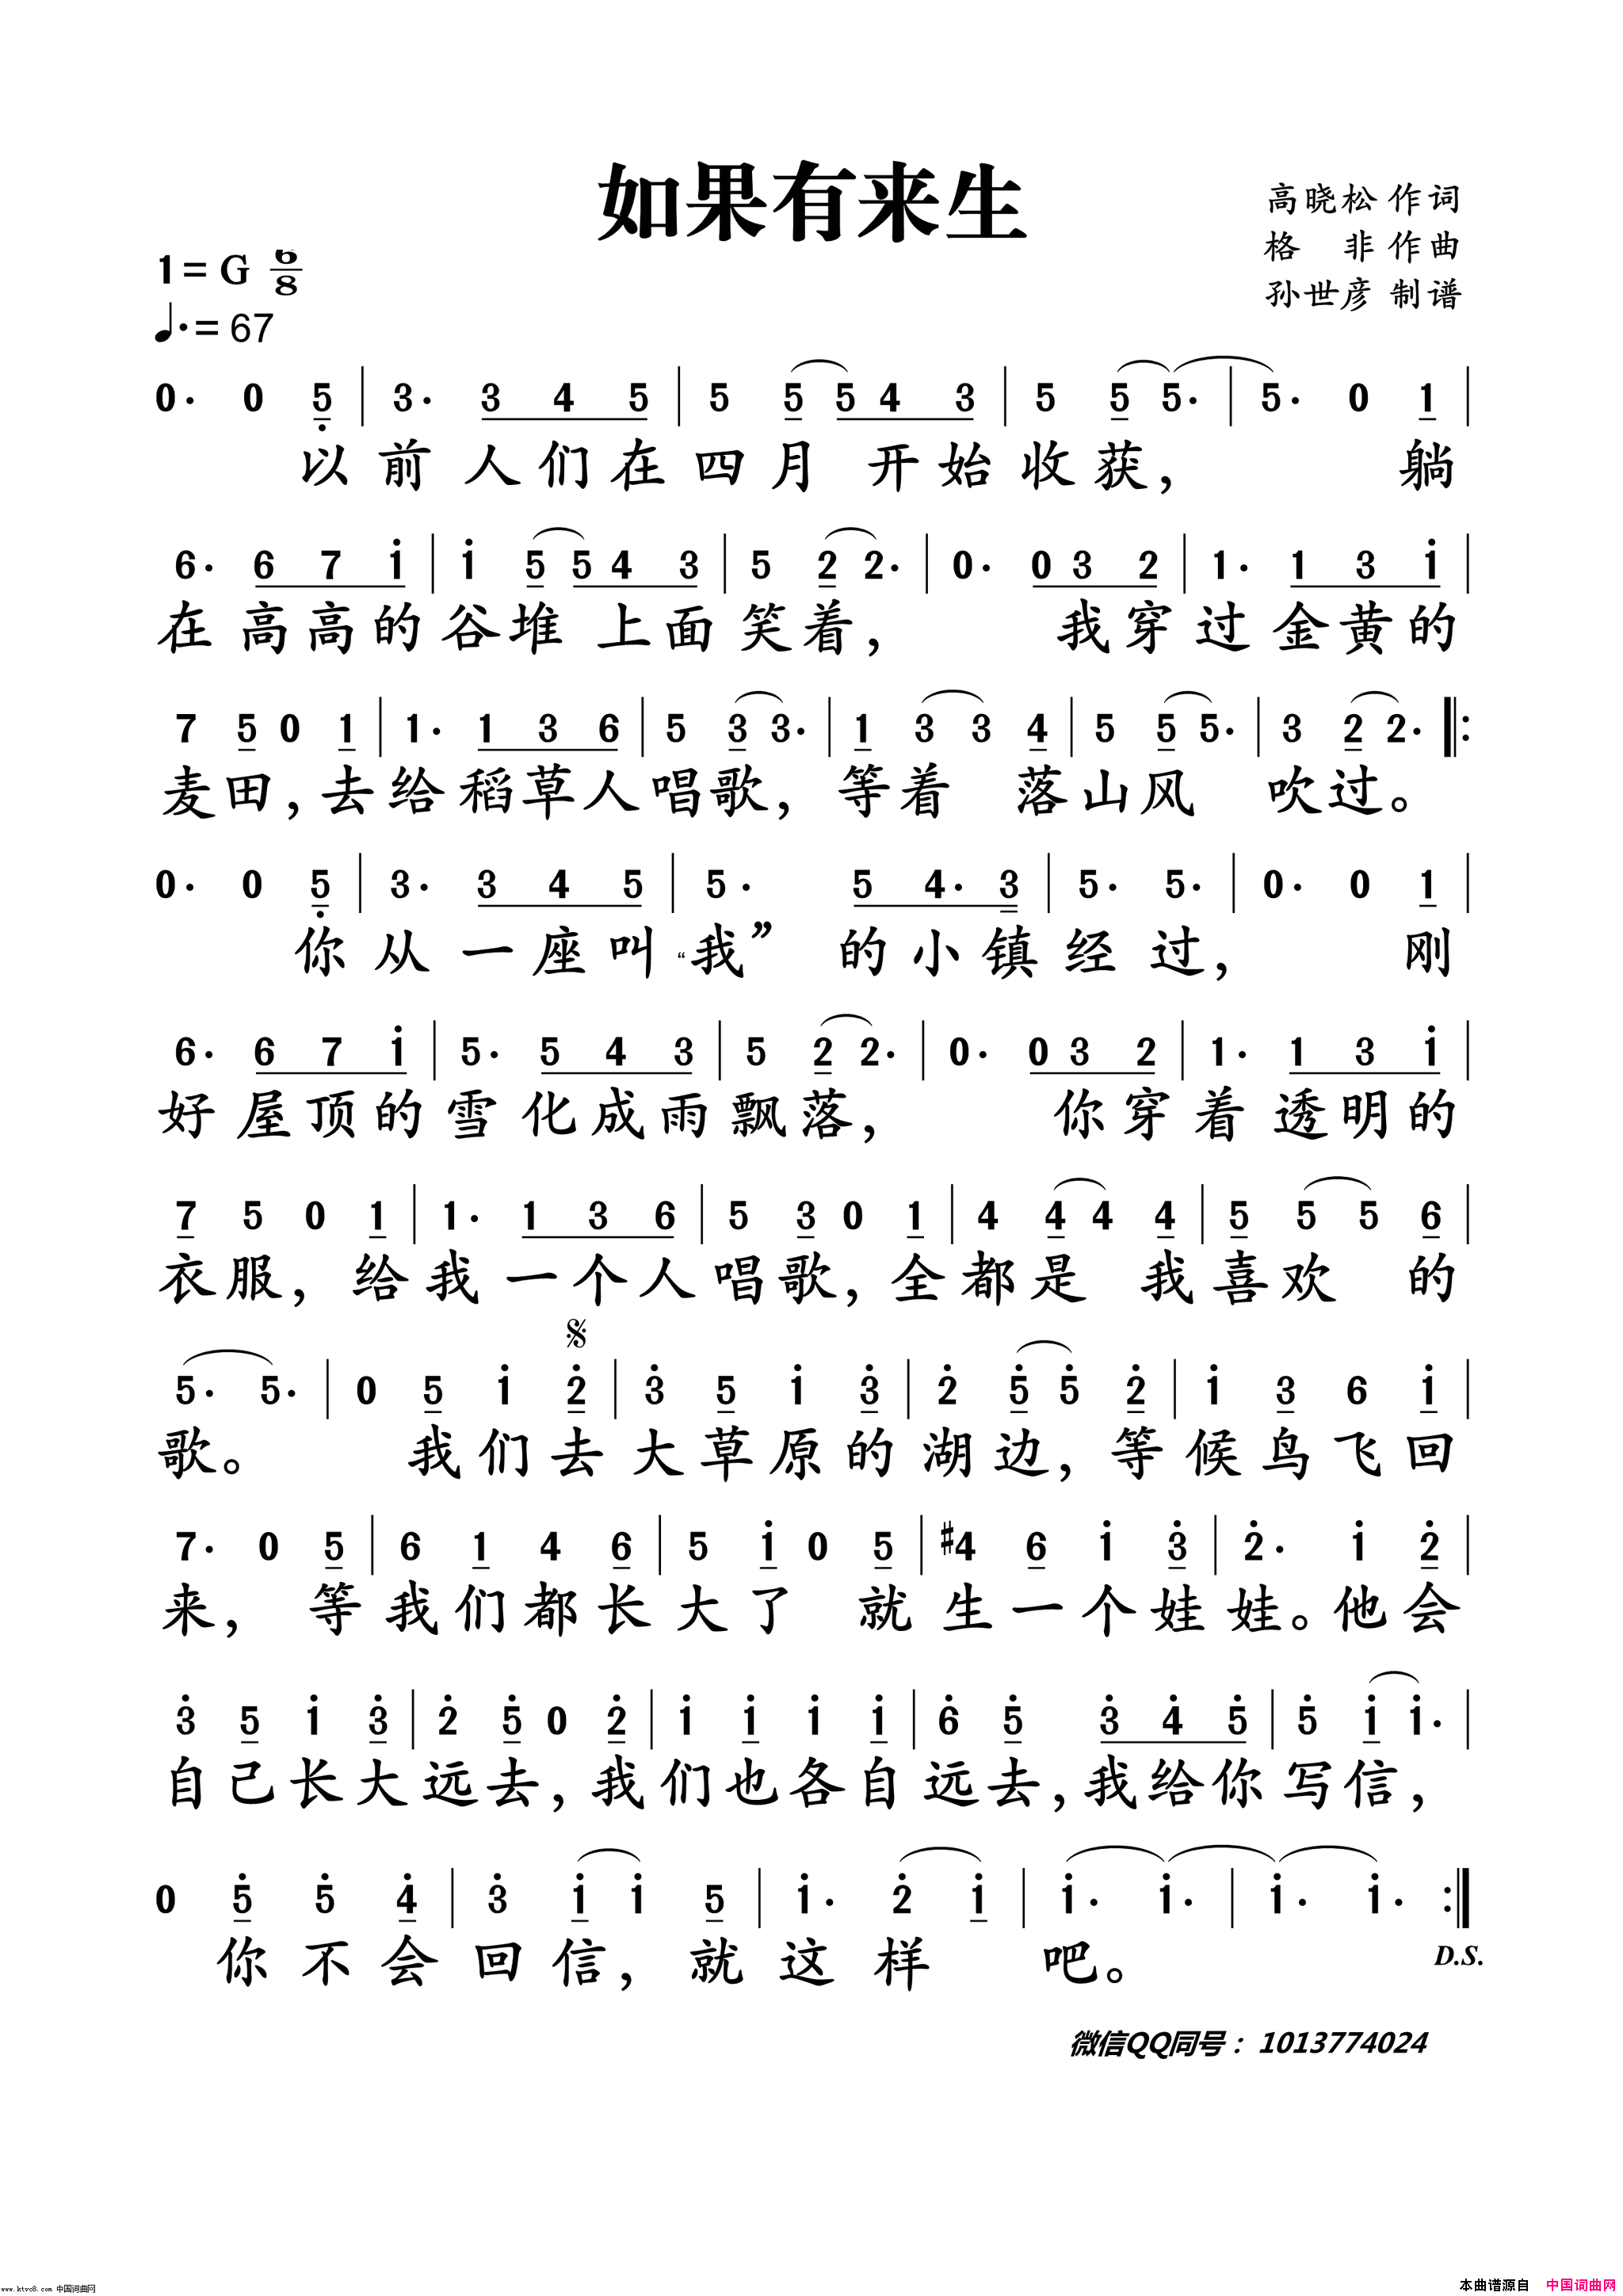 如果有来生
高晓松 作词
格 非 作曲
孙世彦 制谱
1= G 6/8
♩.= 67
0. 0 5̣ | 3. 3 4 5 | 5 5 5 4 3 | 5 5 5. | 5. 0 1 |
以前人们在四月 开始收获, 躺
6. 6 7 i | i 5 5 4 3 | 5 2 2. | 0. 0 3 2 | 1. 1 3 i |
在高高的谷堆 上面笑着, 我穿过金黄的
7 5 0 1 | 1. 1 3 6 | 5 3 3. | 1 3 3 4 | 5 5 5. | 3 2 2. ‖:
麦田,去给稻草人唱歌, 等着 落山风 吹过。
0. 0 5̣ | 3. 3 4 5 | 5. 5 4. 3 | 5. 5. | 0. 0 1 |
你从一座叫“我” 的小镇经过, 刚
6. 6 7 i | 5. 5 4 3 | 5 2 2. | 0. 0 3 2 | 1. 1 3 i |
好屋顶的雪化成雨飘落, 你穿着透明的
7 5 0 1 | 1. 1 3 6 | 5 3 0 1 | 4 4 4 4 | 5 5 5 6 |
衣服, 给我一个人唱歌,全都是 我喜欢 的
𝄋
5. 5. | 0 5 i 2̇ | 3̇ 5 i 3̇ | 2̇ 5̇ 5̇ 2̇ | i 3̇ 6 i |
歌。 我们去大草原的湖边,等候鸟飞回
7. 0 5 | 6 1 4 6 | 5 i 0 5 | #4 6 i 3̇ | 2̇. i 2̇ |
来, 等我们都长大了 就生一个娃娃。他会
3̇ 5 i 3̇ | 2̇ 5̇ 0 2̇ | i i i i | 6̇ 5̇ 3̇ 4̇ 5̇ | 5̇ i i. |
自己长大远去,我们也各自远去,我给你写信,
0 5̇ 5̇ 4̇ | 3̇ i i 5 | i. 2̇ i | i. i. | i. i. :‖
你不会回信, 就这样 吧。
D.S.
微信QQ同号：1013774024
www.ktvc8.com 中国词曲网
本曲谱源自 中国词曲网